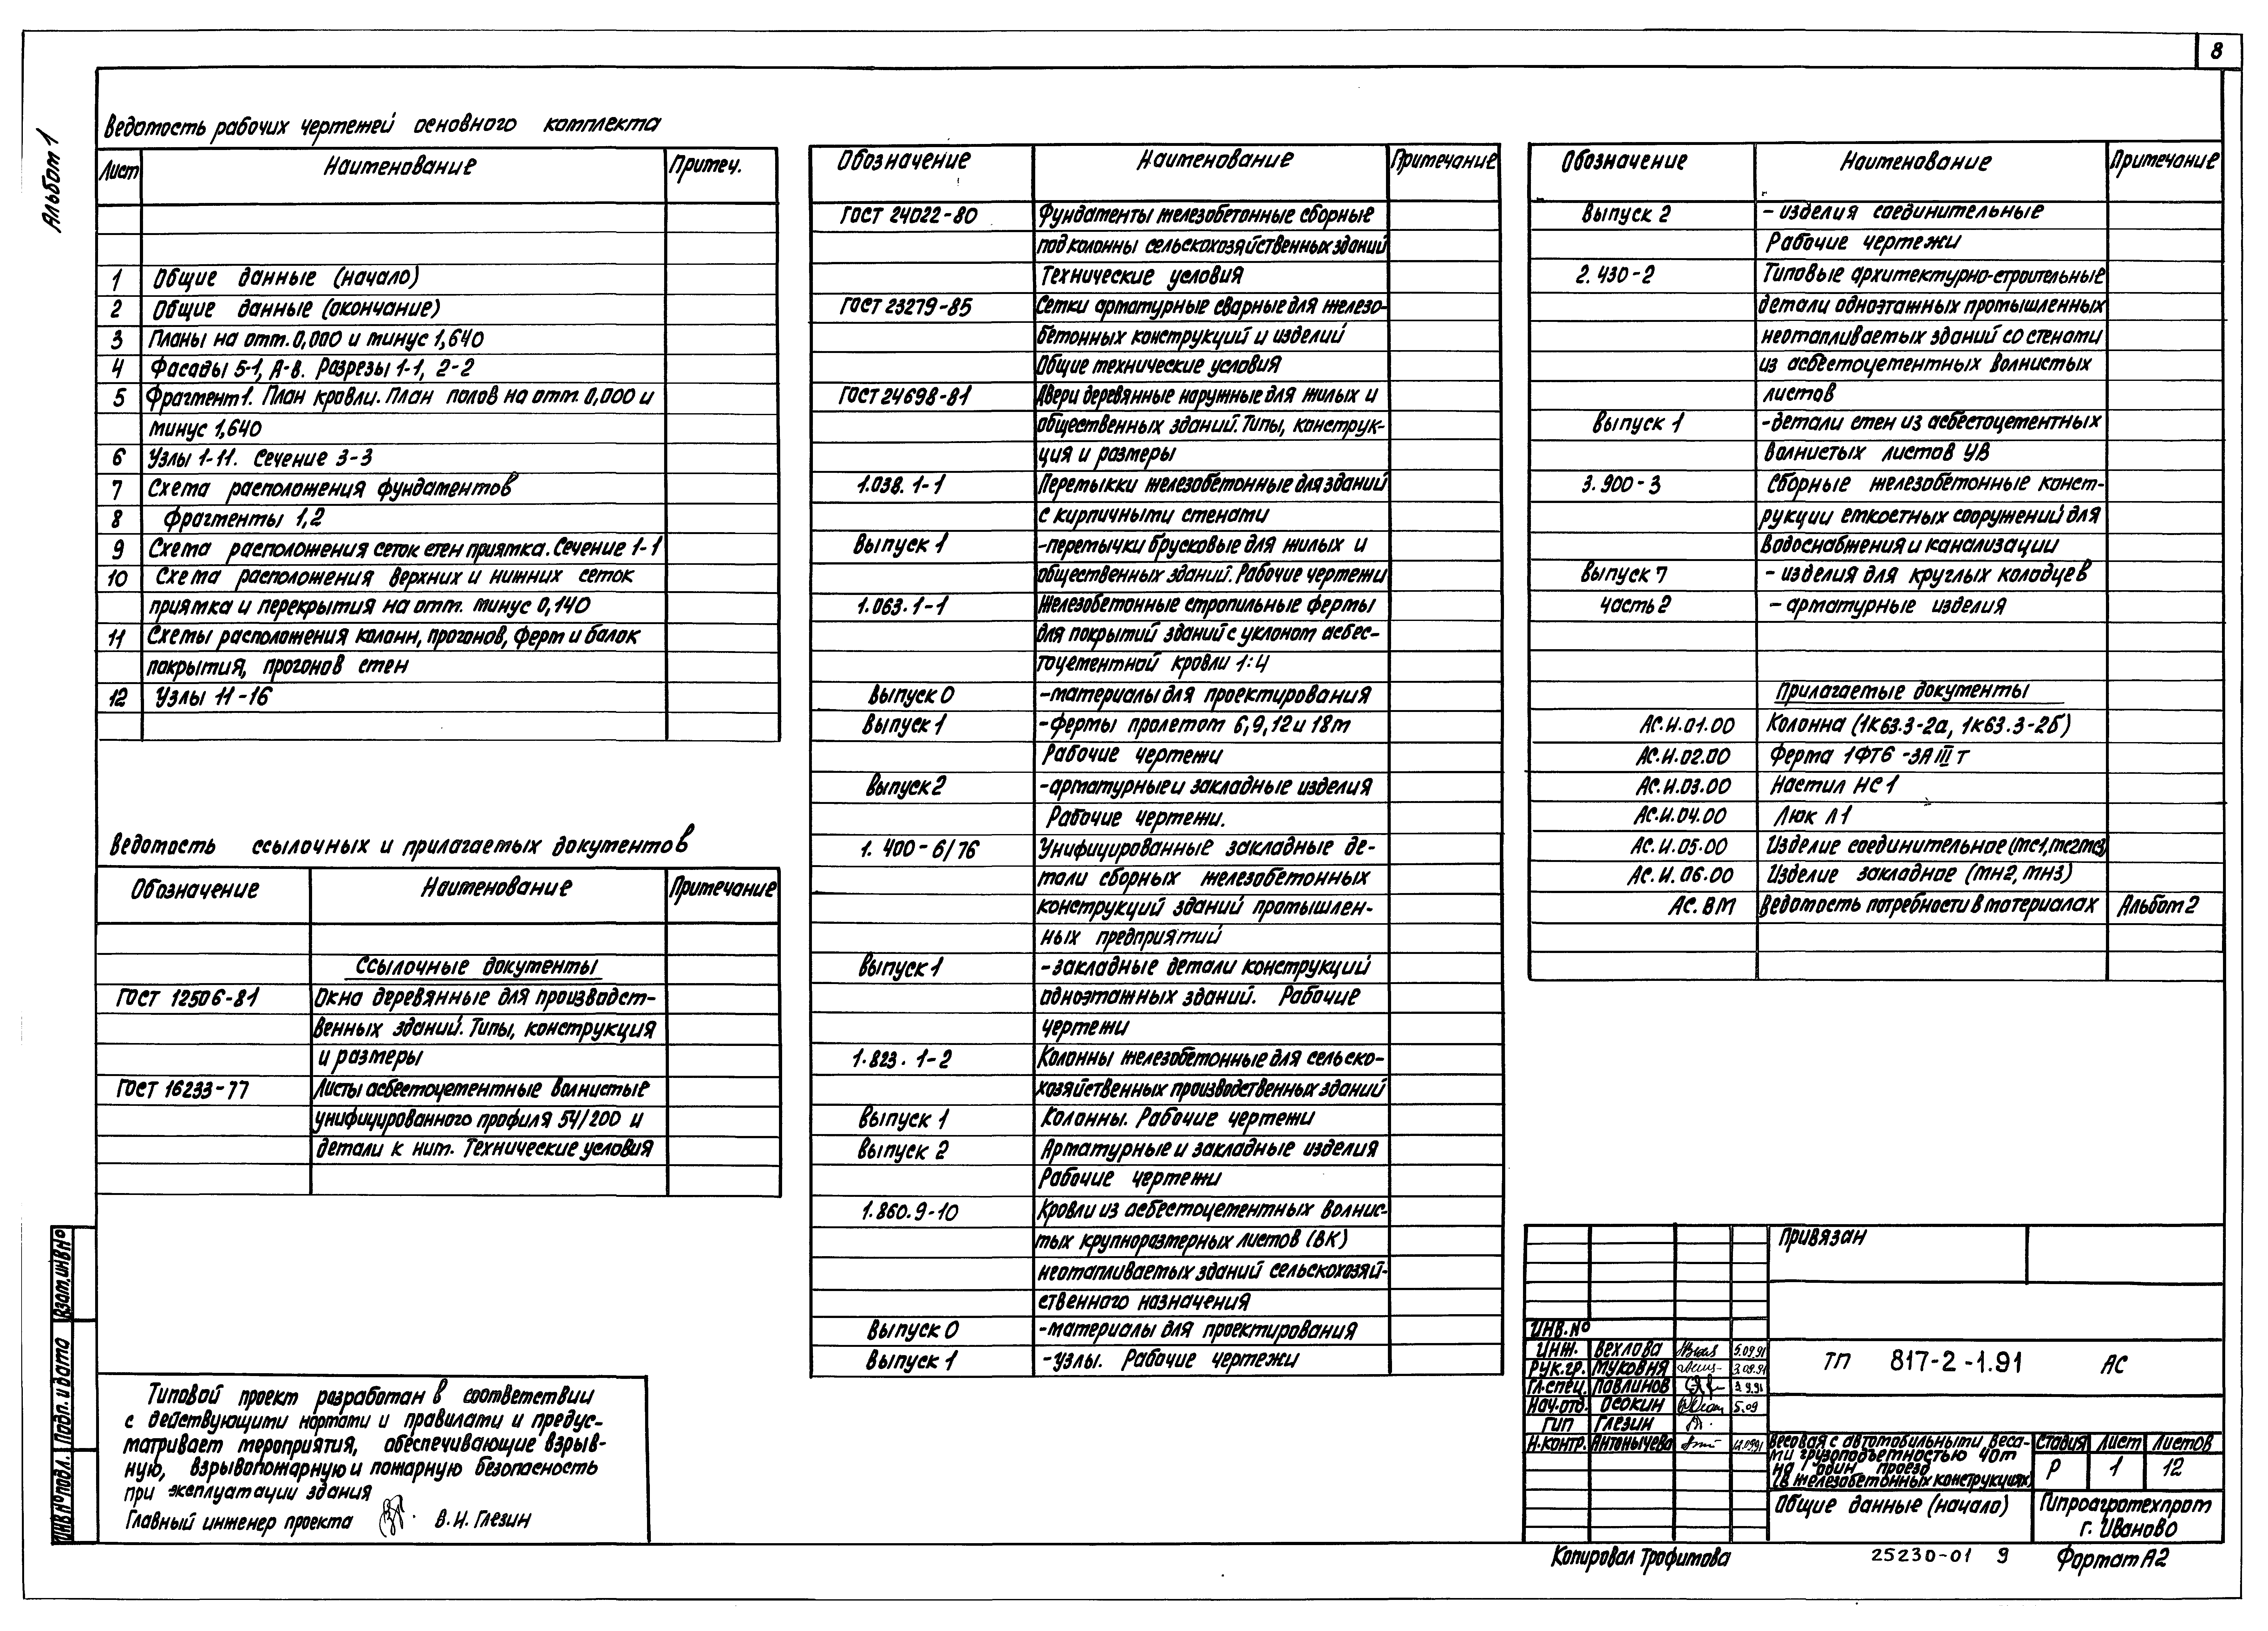 8
Альбом 1
Ведомость рабочих чертежей основного комплекта
Лист Наименование Примеч.
1 Общие данные (начало)
2 Общие данные (окончание)
3 Планы на отм. 0,000 и минус 1,640
4 Фасады 5-1, А-В. Разрезы 1-1, 2-2
5 Фрагмент 1. План кровли. План полов на отм. 0,000 и
минус 1,640
6 Узлы 1-11. Сечение 3-3
7 Схема расположения фундаментов
8 Фрагменты 1,2
9 Схема расположения сеток стен приямка. Сечение 1-1
10 Схема расположения верхних и нижних сеток
приямка и перекрытия на отм. минус 0,140
11 Схемы расположения колонн, прогонов, ферм и балок
покрытия, прогонов стен
12 Узлы 11-16
Ведомость ссылочных и прилагаемых документов
Обозначение Наименование Примечание
Ссылочные документы
ГОСТ 12506-81 Окна деревянные для производст-
венных зданий. Типы, конструкция
и размеры
ГОСТ 16233-77 Листы асбестоцементные волнистые
унифицированного профиля 54/200 и
детали к ним. Технические условия
Типовой проект разработан в соответствии
с действующими нормами и правилами и предус-
матривает мероприятия, обеспечивающие взрыв-
ную, взрывопожарную и пожарную безопасность
при эксплуатации здания
Главный инженер проекта В.И. Глезин
Обозначение Наименование Примечание
ГОСТ 24022-80 Фундаменты железобетонные сборные
под колонны сельскохозяйственных зданий
Технические условия
ГОСТ 23279-85 Сетки арматурные сварные для железо-
бетонных конструкций и изделий
Общие технические условия
ГОСТ 24698-81 Двери деревянные наружные для жилых и
общественных зданий. Типы, конструк-
ция и размеры
1.038. 1-1 Перемыкки железобетонные для зданий
с кирпичными стенами
Выпуск 1 -перемычки брусковые для жилых и
общественных зданий. Рабочие чертежи
1.063. 1-1 Железобетонные стропильные фермы
для покрытий зданий с уклоном асбес-
тоцементной кровли 1:4
Выпуск 0 -материалы для проектирования
Выпуск 1 -фермы пролетом 6,9,12 и 18м
Рабочие чертежи
Выпуск 2 -арматурные и закладные изделия
Рабочие чертежи.
1. 400-6/76 Унифицированные закладные де-
тали сборных железобетонных
конструкций зданий промышлен-
ных предприятий
Выпуск 1 -закладные детали конструкций
одноэтажных зданий. Рабочие
чертежи
1.823. 1-2 Колонны железобетонные для сельско-
хозяйственных производственных зданий
Выпуск 1 Колонны. Рабочие чертежи
Выпуск 2 Арматурные и закладные изделия
Рабочие чертежи
1.860.9-10 Кровли из асбестоцементных волнис-
тых крупноразмерных листов (ВК)
неотапливаемых зданий сельскохозяй-
ственного назначения
Выпуск 0 -материалы для проектирования
Выпуск 1 -узлы. Рабочие чертежи
Обозначение Наименование Примечание
Выпуск 2 - изделия соединительные
Рабочие чертежи
2.430-2 Типовые архитектурно-строительные
детали одноэтажных промышленных
неотапливаемых зданий со стенами
из асбестоцементных волнистых
листов
Выпуск 1 -детали стен из асбестоцементных
волнистых листов УВ
3.900-3 Сборные железобетонные конст-
рукции емкостных сооружений для
водоснабжения и канализации
Выпуск 7 - изделия для круглых колодцев
часть 2 - арматурные изделия
Прилагаемые документы
АС.И.01.00 Колонна (1К63.3-2а, 1К63.3-2б)
АС.И.02.00 Ферма 1ФТ6-3АIIIт
АС.И.03.00 Настил НС1
АС.И.04.00 Люк Л1
АС.И.05.00 Изделие соединительное (МС1, МС2, МС3)
АС.И.06.00 Изделие закладное (МН2, МН3)
АС.ВМ Ведомость потребности в материалах Альбом 2
Привязан
ИНВ.№
ИНЖ. Вехлова 5.09.91
Рук.гр. Муковня 3.09.91
Гл.спец. Павлинов 3.9.91
Нач.отд. Осокин 5.09
ГИП Глезин
Н.контр. Антонычева 12.09.91
ТП 817-2-1.91 АС
Весовая с автомобильными веса-
ми грузоподъемностью 40т
на один проезд
(в железобетонных конструкциях)
Стадия Лист Листов
Р 1 12
Общие данные (начало)
Гипроагротехпром
г. Иваново
Копировал Трофимова 25230-01 9 Формат А2
Взам.инв№
Подп. и дата
Инв № подл.